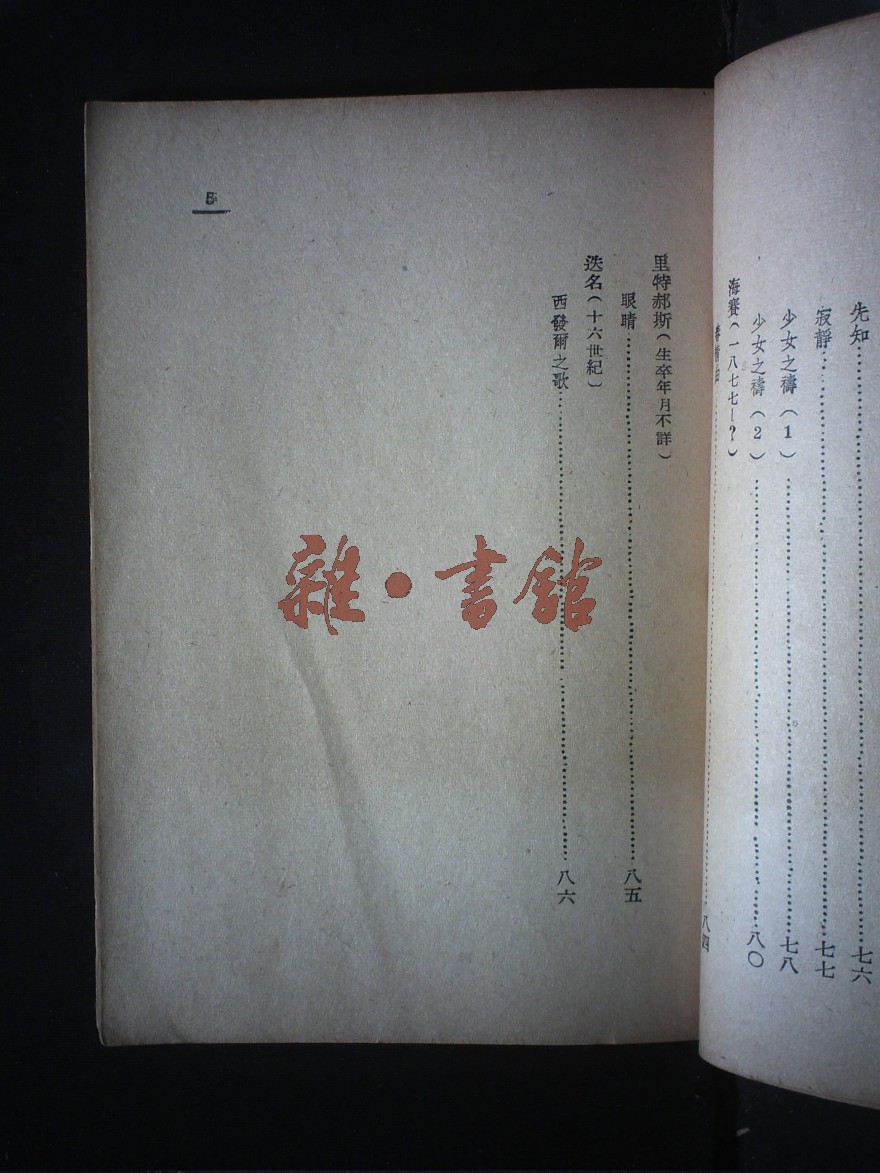 先知……七六
寂靜……七七
少女之禱（1）……七八
少女之禱（2）……八〇
海賽（一八七七—？）
……八四
里特郝斯（生卒年月不詳）
眼睛……八五
迭名（十六世紀）
西發爾之歌……八六
5
雜·書館